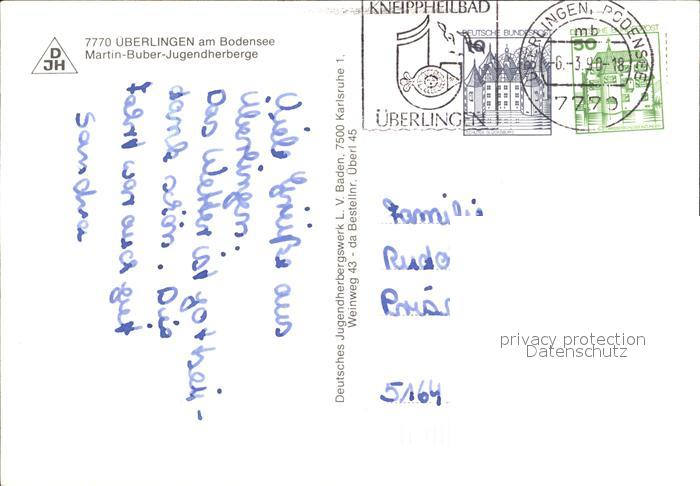 7770 ÜBERLINGEN am Bodensee
Martin-Buber-Jugendherberge
DJH
KNEIPPHEILBAD
ÜBERLINGEN
ÜBERLINGEN, BODENSEE
mb
-6.-3.90-18
7770
DEUTSCHE BUNDESPOST
50
Viele Grüße aus
Überlingen.
Das Wetter ist gott sei-
dank schön. Die
Fahrt war auch gut
Sandra
Deutsches Jugendherbergswerk L. V. Baden, 7500 Karlsruhe 1,
Weinweg 43 - da Bestellnr. Überl 45
Familie
5164
privacy protection
Datenschutz